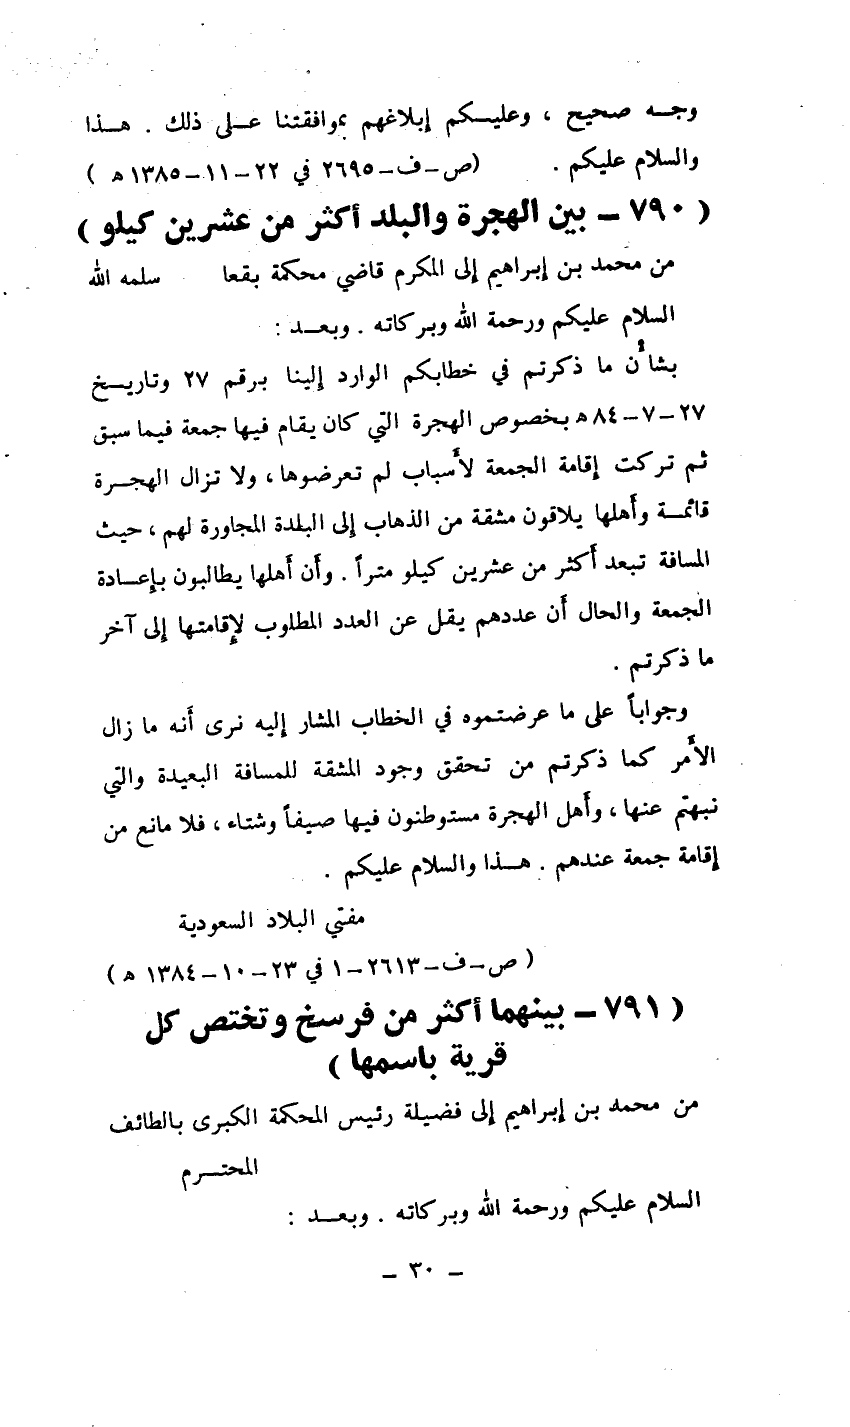 وجــه صحيح ، وعليــكم إبلاغهم بموافقتنا عــلى ذلك . هــذا
والسلام عليكم . (ص-ف-٢٦٩٥ في ٢٢-١١-١٣٨٥ ه )
( ٧٩٠ - بين الهجرة والبلد أكثر من عشرين كيلو )
من محمد بن إبراهيم إلى المكرم قاضي محكمة بقعا سلمه الله
السلام عليكم ورحمة الله وبركاته . وبعــد :
بشأن ما ذكرتم في خطابكم الوارد إلينا برقم ٢٧ وتاريــخ
٢٧-٧-٨٤ ه بخصوص الهجرة التي كان يقام فيها جمعة فيما سبق
ثم تركت إقامة الجمعة لأسباب لم تعرضوها ، ولا تزال الهجــرة
قائمــة وأهلها يلاقون مشقة من الذهاب إلى البلدة المجاورة لهم ، حيث
المسافة تبعد أكثر من عشرين كيلو متراً . وأن أهلها يطالبون بإعــادة
الجمعة والحال أن عددهم يقل عن العدد المطلوب لإقامتها إلى آخر
ما ذكرتم .
وجواباً على ما عرضتموه في الخطاب المشار إليه نرى أنه ما زال
الأمر كما ذكرتم من تحقق وجود المشقة للمسافة البعيدة والتي
نبهتم عنها ، وأهل الهجرة مستوطنون فيها صيفاً وشتاء ، فلا مانع من
إقامة جمعة عندهم . هــذا والسلام عليكم .
مفتي البلاد السعودية
( ص-ف-٢٦١٣-١ في ٢٣-١٠-١٣٨٤ ه )
( ٧٩١ - بينهما أكثر من فرسخ وتختص كل
قرية باسمها )
من محمد بن إبراهيم إلى فضيلة رئيس المحكمة الكبرى بالطائف
المحتــرم
السلام عليكم ورحمة الله وبركاته . وبعــد :
- ٣٠ -